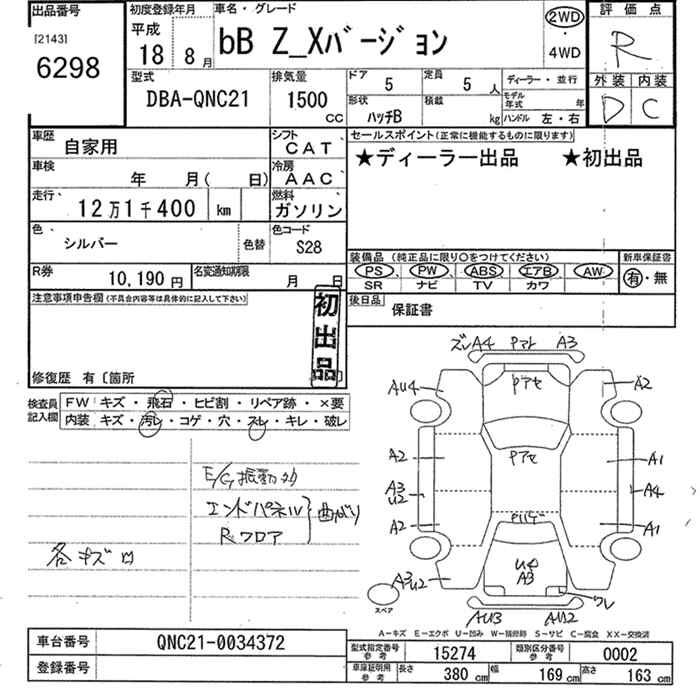 出品番号
[2143]
6298
初度登録年月
平成
18 8月
車名・グレード
bB Z_Xバージョン
2WD
・
4WD
評価点
R
外装 内装
D C
型式
DBA-QNC21
排気量
1500
CC
ドア
5
定員
5 人
形状
ハッチB
積載
kg
ディーラー・並行
モデル年式 年
ハンドル 左・右
車歴
自家用
シフト
CAT
車検
年 月( 日)
冷房
AAC
走行
12万1千400 km
燃料
ガソリン
色
シルバー
色替
色コード
S28
R券
10,190円
名変通知期限
月 日
セールスポイント(正常に機能するものに限ります)
★ディーラー出品 ★初出品
装備品(純正品に限り〇をつけてください)
PS PW ABS エアB AW
SR ナビ TV カワ
新車保証書
有・無
後日品
保証書
注意事項申告欄(不具合内容等は具体的に記入して下さい)
初出品
修復歴 有〔箇所
検査員記入欄
FW キズ・飛石・ヒビ割・リペア跡・×要
内装 キズ・汚レ・コゲ・穴・スレ・キレ・破レ
E/G振動有
エンドパネル
Rフロア
曲がり
各キズ凹
ズレA4 Pマト A3
AU4 Pアセ A2
A2 Pアセ A1
A3
U2
A4
A2 A1
U4
A3
A3U2
ワレ
AU3 AU2
スペア
A−キズ E−エクボ U−凹み W−補修跡 S−サビ C−腐食 XX−交換済
車台番号
QNC21-0034372
登録番号
型式指定番号
参考
15274
類別区分番号
参考
0002
車庫証明用
参考
長さ 380 cm
幅 169 cm
高さ 163 cm